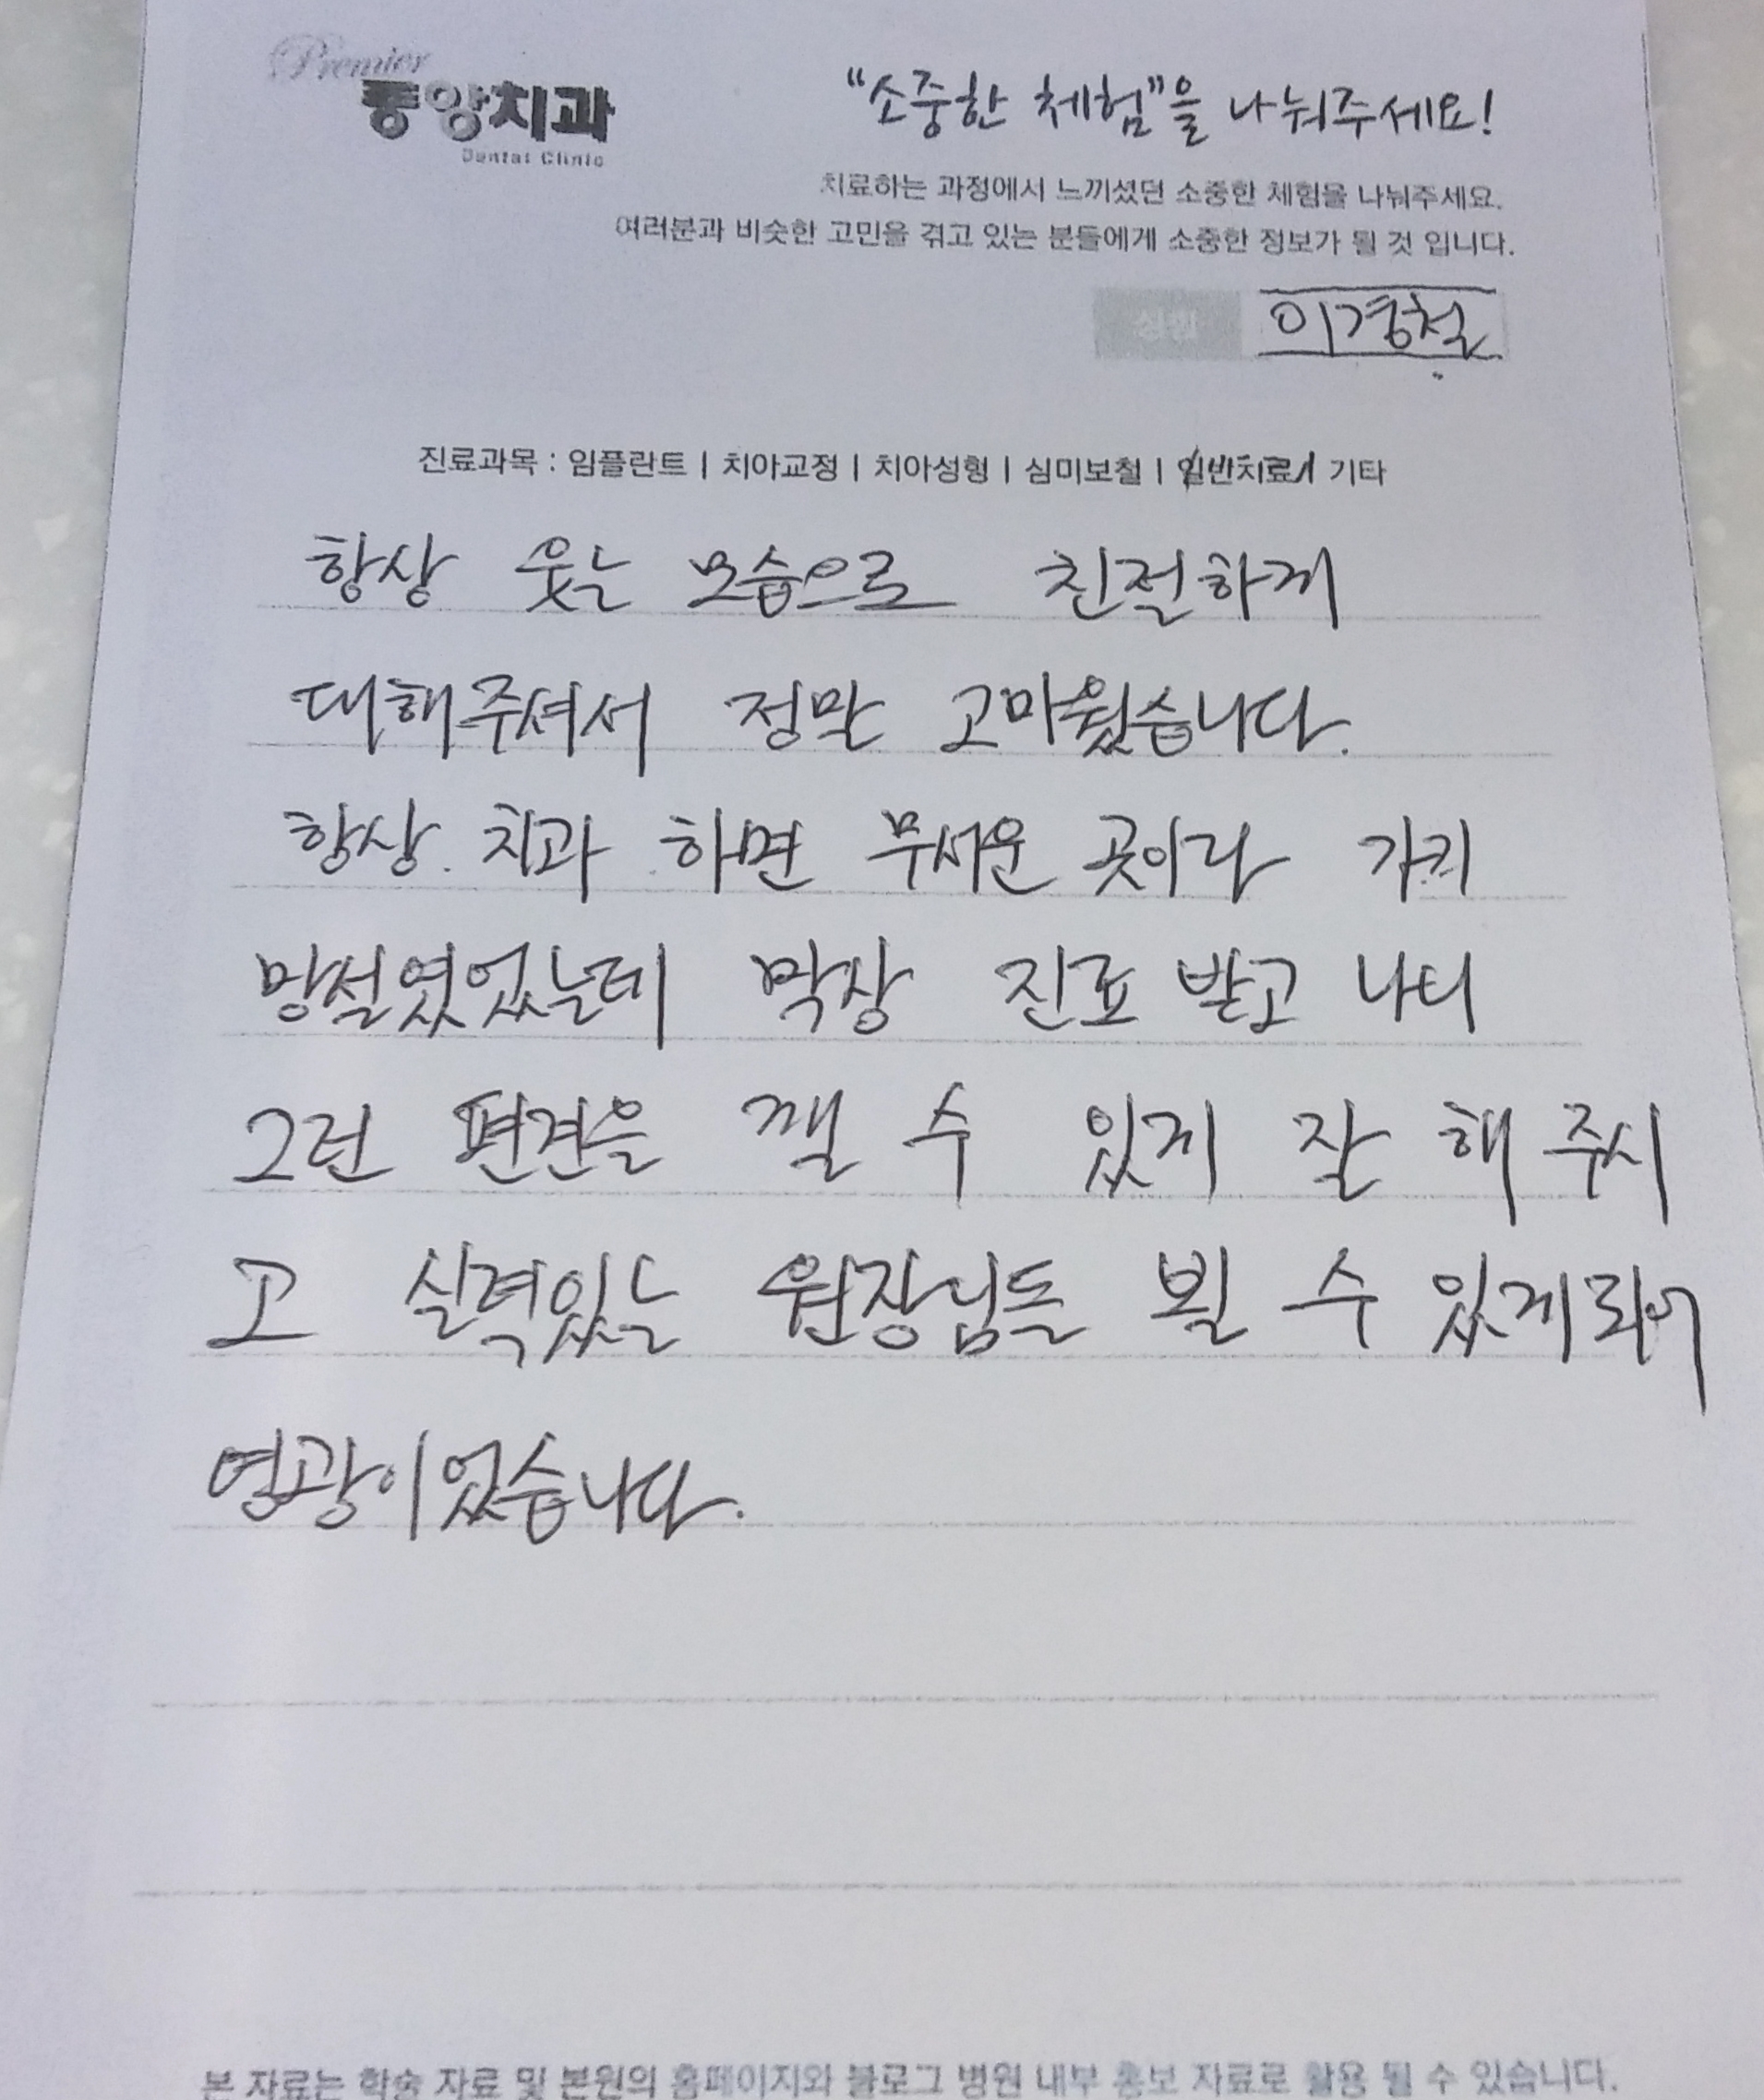 Premier
중앙치과
Dental Clinic
“소중한 체험”을 나눠주세요!
치료하는 과정에서 느끼셨던 소중한 체험을 나눠주세요.
여러분과 비슷한 고민을 겪고 있는 분들에게 소중한 정보가 될 것 입니다.
성함 이경철
진료과목 : 임플란트 | 치아교정 | 치아성형 | 심미보철 | 일반치료 | 기타
항상 웃는 모습으로 친절하게
대해주셔서 정말 고마웠습니다.
항상 치과 하면 무서운 곳이라 가기
망설였었는데 막상 진료 받고 나니
그런 편견을 깰 수 있게 잘 해 주시
고 실력있는 원장님들 뵐 수 있게되어
영광이었습니다.
본 자료는 학술 자료 및 본원의 홈페이지와 블로그 병원 내부 홍보 자료로 활용 될 수 있습니다.